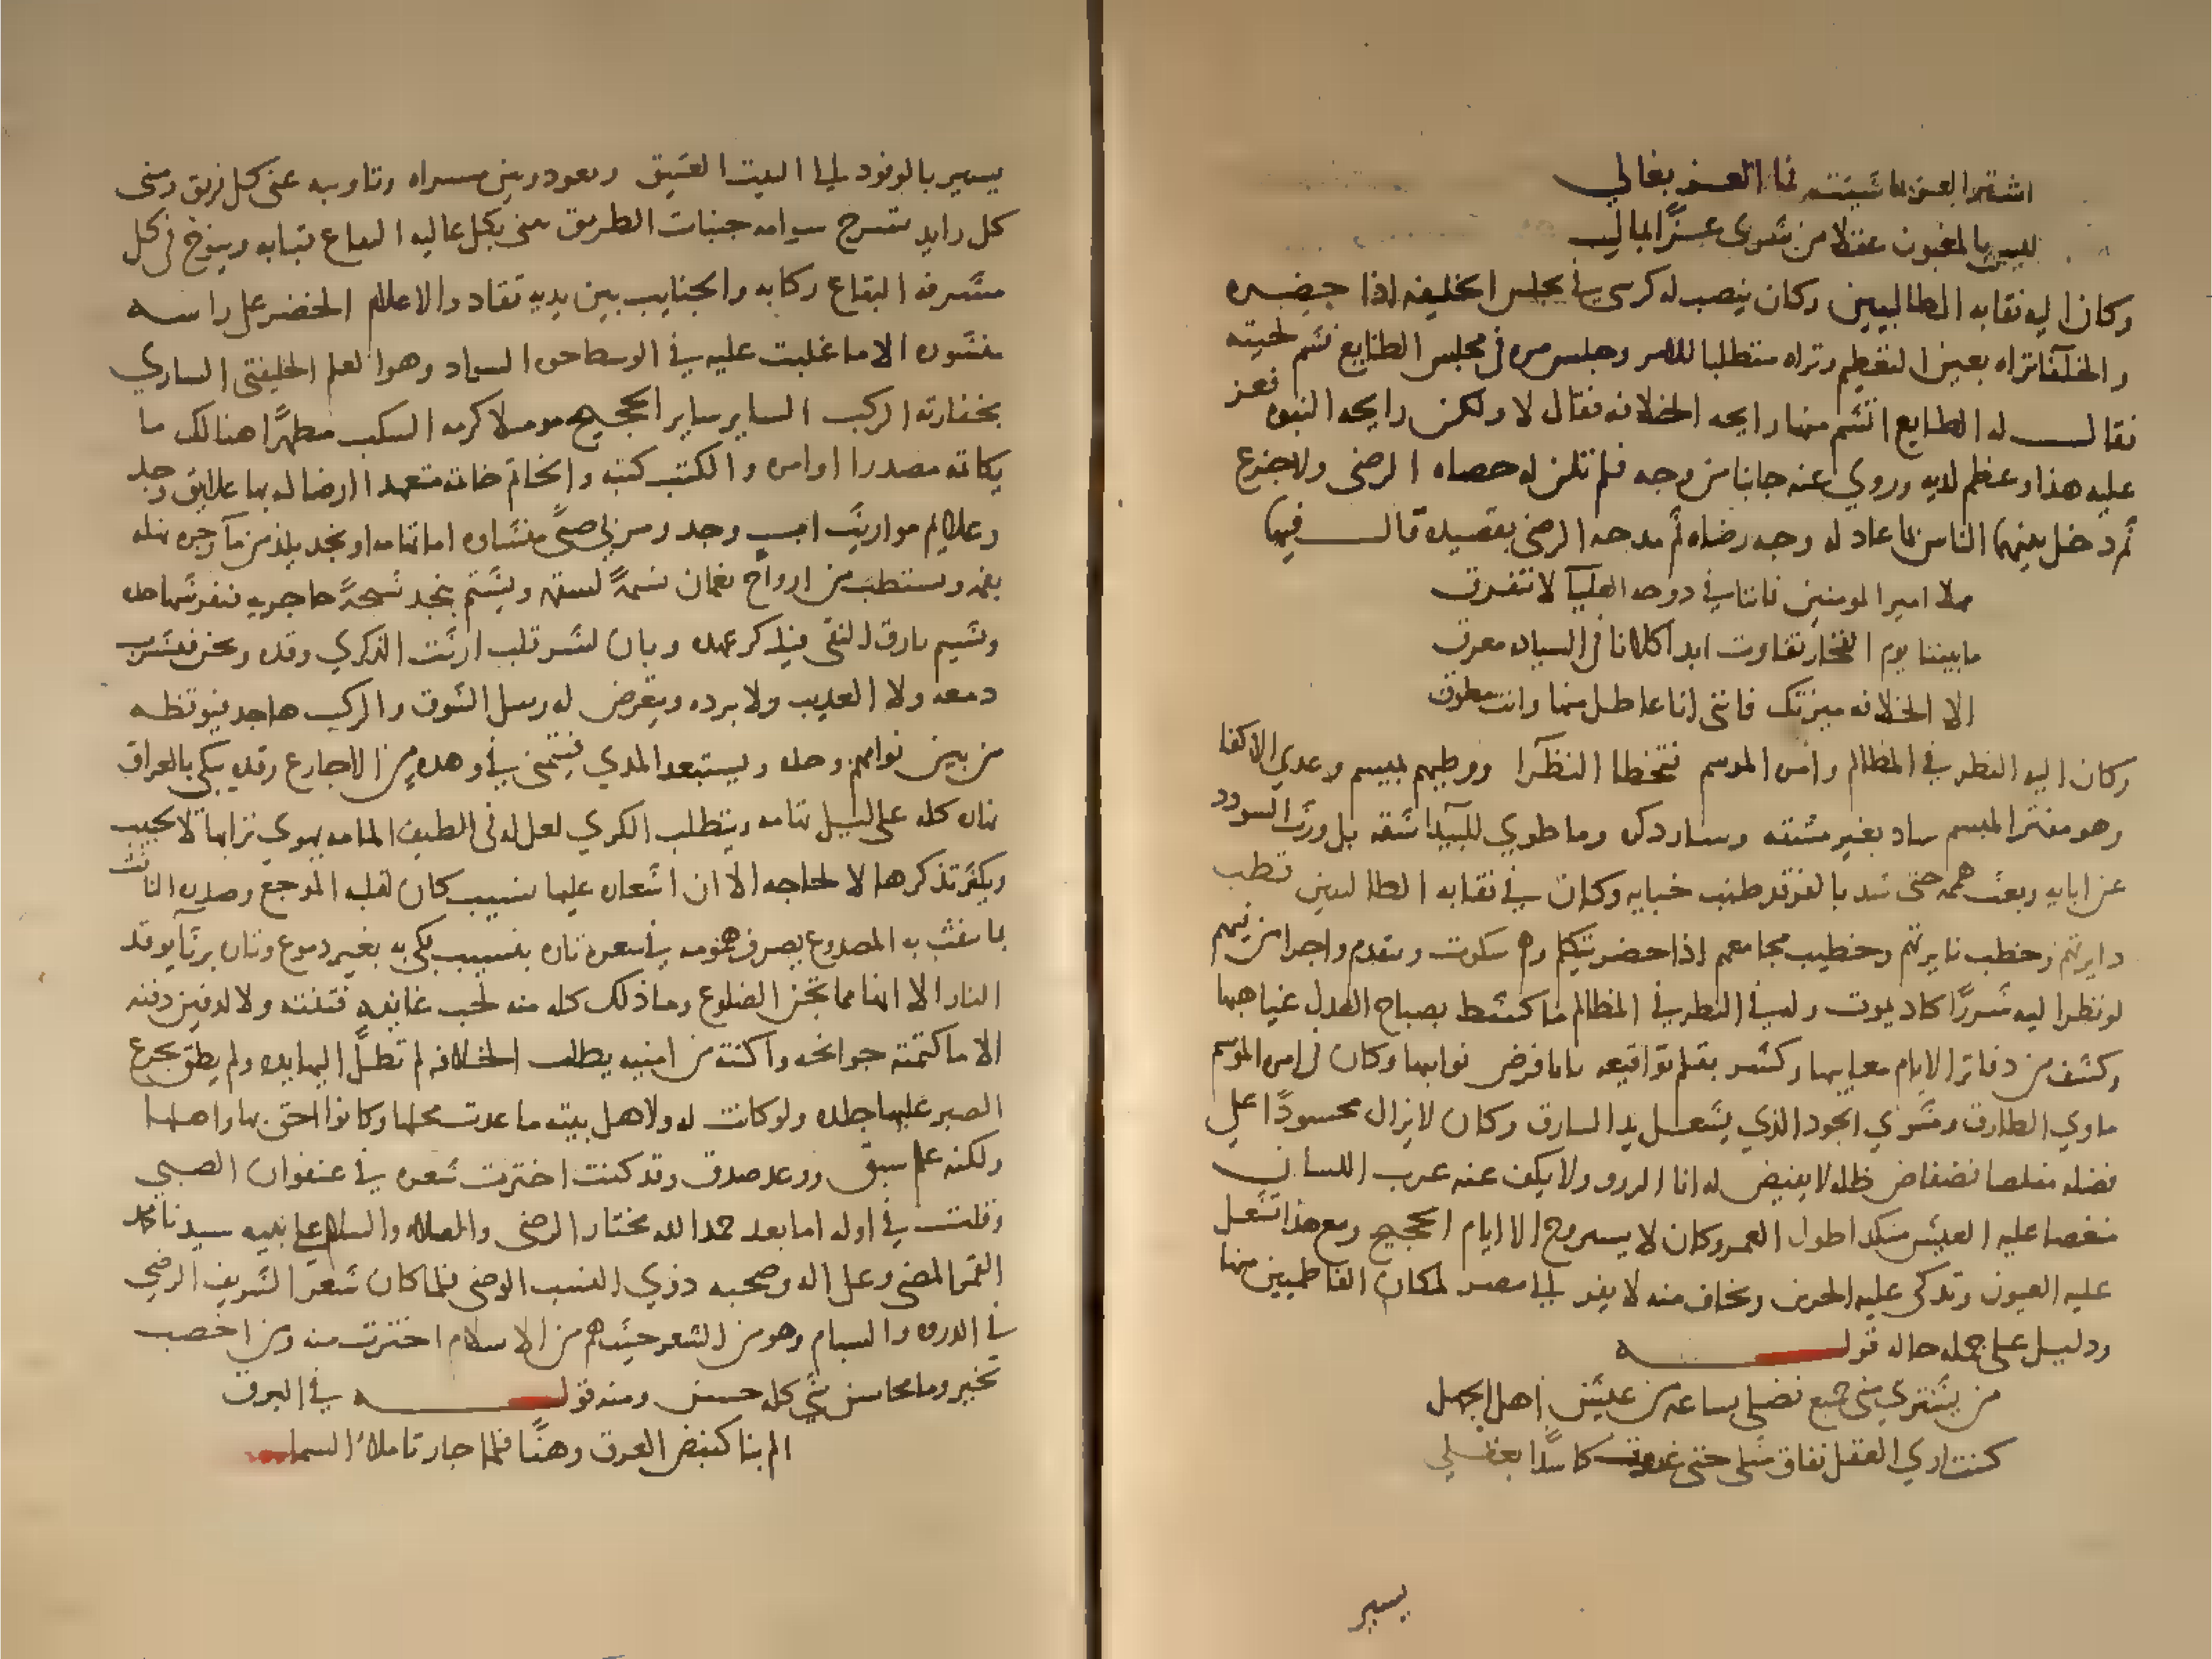 اشتر العز بما شئت فما العز بغالي
ليس بالمغبون عقلا من شرى عزا بمال
وكان اليه نقابه الطالبيين وكان ينصب له كرسي في مجلس الخليفه اذا حضره
والخلفا تراه بعين التعظيم وتراه متطلبا للامر وجلس مره في مجلس الطايع فشم لحيته
فقال له الطايع اتشم منها رايحه الخلافه فقال لا ولكن رايحه النبوه فعز
عليه هذا وعظم لديه وروي عنه جانبا من وجه فلم تلن له حصاه الرضى ولا جزع
ثم دخل بينهما الناس فاعاد له وجه رضاه ثم مدحه الرضى بقصيده قال فيها
مهلا امير المومنين فاننا في دوحه العليآ لا نتفرق
ما بيننا يوم الفخار تفاوت ابدا كلانا في السياده معرق
الا الخلافه ميزتك فانني انا عاطل منها وانت مطوق
وكان اليه النظر في المظالم وامر الموسم فتخطا النظرا ووطيهم بميسم وعدي الاكفا
وهو مفتر المبسم ساد بغير مشقه وسار ذكره وما طوي للبيدا شقه بل ورث السودد
عن ابايه وبعث همه حتى شد بالفرقد طنب خبايه وكان في نقابه الطالبيين قطب
دايرتهم وخطب نايرتهم وخطيب مجامعهم اذا حضر تكلم وهم سكوت وتقدم واجرا من فيهم
لو نظر اليه شزرا كاد يموت وليه النظر في المظالم ما كشط بصباح العدل غياهبها
وكشف من دفاتر الايام معايبها وكشر بقلم تواقيعه نابا فرض نوابها وكان في امره الموسم
ماوي الطارق ومشوي الجود الذي يشعل يد السارق وكان لا يزال محسودا على
فضله مقلصا فضفاض ظله لا يفيض له انا الورد ولا يكف عنه غرب اللسان
منغصا عليه العيش منكدا طول العمر وكان لا يسرح الا ايام الحجيج ومع هذا تشعل
عليه العيون وتذكى عليه الحرس ويخاف منه لا يفر الى مصر لمكان الفاطميين منها
ودليل على جمله حاله قوله
من يشتري مني جميع فضلي بساعه من عيش اهل الجهل
كنت اري العقل نفاق مثلي حتى غدوت كاسدا بعقلي
يسير
يسير بالوفود الى البيت العتيق ويعود وبين مسراه وتاويبه غنى كل فريق ومنى
كل رايد تسرح سوامه جنبات الطريق منى بكل عاليه البقاع قبابه وينوخ في كل
مشرفه البقاع ركابه والجنايب بين يديه تقاد والاعلام الخضر على راسه
منشوره الا ما غلبت عليه في الوسط احوى السواد وهو العلم الخليفتي الساري
بخفارته الركب الساير ساير الحجيج مومله كرمه السكب مطهرا هنالك ما
يكاتبه مصدرا اوامره والكتب كتبه والخاتم خاتمه متعهدا ارضا له بها علايق وجد
بغمره ويستطب من ارواح نعمان نسمة لسقمه ويشتم بنجد نسمة حاجريه
ويشيم بارق النقى فيذكر عهده وبان لشر قلب ارثت الذكري وقده
دمعه ولا العذيب ولا برده ويعرض له رسل الشوق والركب هاجد فيوقظه
من بين نوامهم وحده ويستبعد المدي فيتمنى في وهده من الاجارع رقده يبكي بالعراق
تاره كله على ليل تمامه ويتطلب الكري لعل له في الطيف المامه يهوي ترابها لا يجيب
ويكثر تذكرها لا لحاجه الا ان اشعاره عليها نسيب كان لقلبه الموجع وصدره النافث
ما ينفث به المصدوع يصرف همومه في شعره تاره بنسيب يبكى به بغير دموع وتاره برثآ يوقد
النار الا انها مما تجن الضلوع وما ذلك كله منه لحب غانيه فتنته ولا لدفين دفنه
الا ما كتمته جوانحه واكنته من امنيه يطالب الخلافه لم تطل اليها يده ولم يطق تجرع
الصبر عليها جلده ولو كانت له ولاهل بيته ما عدت محلها وكانوا احق بها واهلها
ولكنه علم سبق ووعد صدق وقد كنت اخترت شعره في عنفوان الصبى
وقلت في اوله اما بعد حمد الله مختار الرضى والصلاه والسلام على نبيه سيدنا محمد
القمر المضي وعلى اله وصحبه ذوي النسب الوضى فلما كان شعر الشريف الرضي
في الدروه والسنام وهو من الشعر حيث هم من الاسلام اخترت منه ومن اخصب
تخير وما محاسن شي كله حسن ومنه قوله في البرق
الم بنا كنبض العرق وهنا فلما جاز تا ملا السما